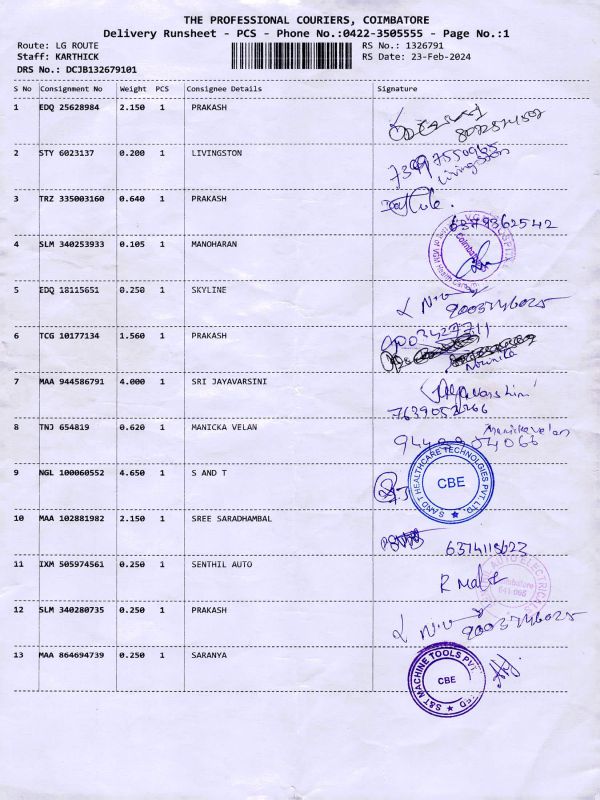 THE PROFESSIONAL COURIERS, COIMBATORE
Delivery Runsheet - PCS - Phone No.:0422-3505555 - Page No.:1
Route: LG ROUTE
RS No.: 1326791
Staff: KARTHICK
RS Date: 23-Feb-2024
DRS No.: DCJB132679101
S No Consignment No Weight PCS Consignee Details Signature
1 EDQ 25628984 2.150 1 PRAKASH
2 STY 6023137 0.200 1 LIVINGSTON
Livingston
3 TRZ 335003160 0.640 1 PRAKASH
6379362542
4 SLM 340253933 0.105 1 MANOHARAN
Coimbatore
5 EDQ 18115651 0.250 1 SKYLINE
9003746025
6 TCG 10177134 1.560 1 PRAKASH
7 MAA 944586791 4.000 1 SRI JAYAVARSINI
8 TNJ 654819 0.620 1 MANICKA VELAN
Manickavelan
9 NGL 100060552 4.650 1 S AND T
S AND T HEALTHCARE TECHNOLGIES PVT. LTD.
CBE
10 MAA 102881982 2.150 1 SREE SARADHAMBAL
11 IXM 505974561 0.250 1 SENTHIL AUTO
AUTO ELECTRICALS
Coimbatore
641 065
12 SLM 340280735 0.250 1 PRAKASH
9003746025
13 MAA 864694739 0.250 1 SARANYA
S&T MACHINE TOOLS PVT. LIMITED
CBE